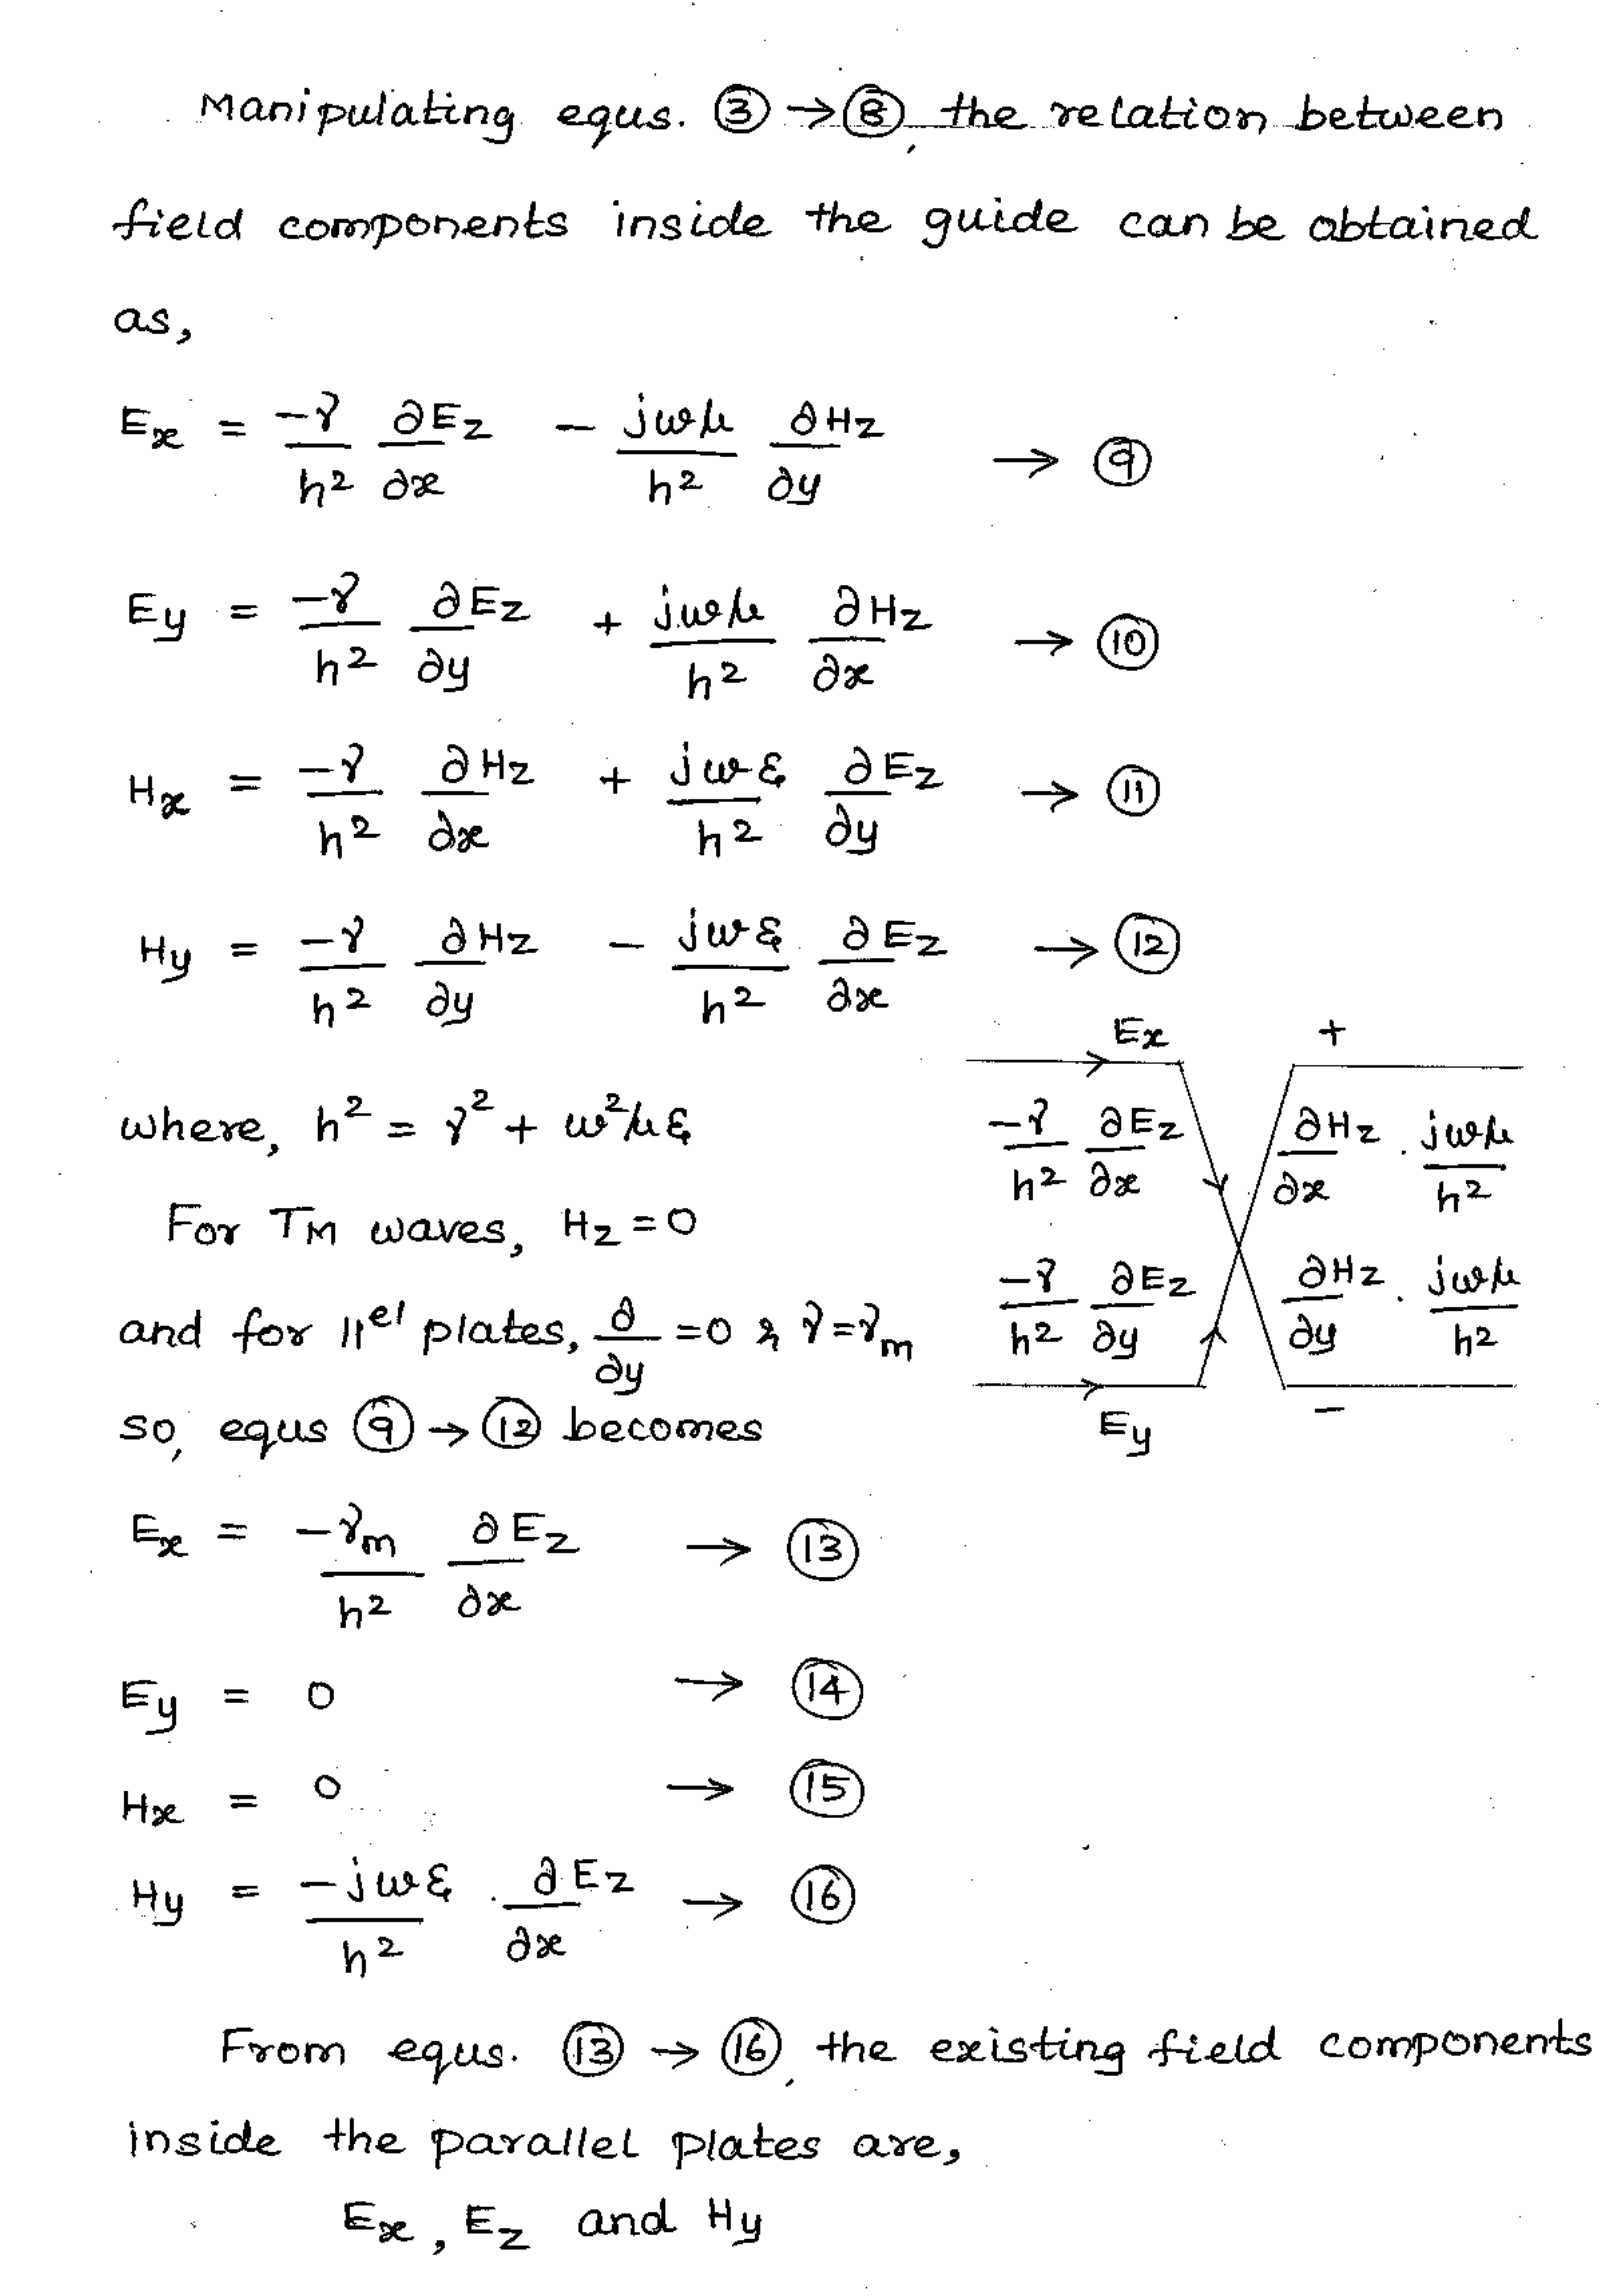 Manipulating equs. ③ → ⑧, the relation between
field components inside the guide can be obtained
as,
Ex = -γ/h² ∂Ez/∂x - jωμ/h² ∂Hz/∂y → ⑨
Ey = -γ/h² ∂Ez/∂y + jωμ/h² ∂Hz/∂x → ⑩
Hx = -γ/h² ∂Hz/∂x + jωε/h² ∂Ez/∂y → ⑪
Hy = -γ/h² ∂Hz/∂y - jωε/h² ∂Ez/∂x → ⑫
where, h² = γ² + ω²με
For TM waves, Hz = 0
and for ||el plates, ∂/∂y = 0 & γ = γm
so, equs ⑨ → ⑫ becomes
Ex +
-γ/h² ∂Ez/∂x ∂Hz/∂x . jωμ/h²
-γ/h² ∂Ez/∂y ∂Hz/∂y . jωμ/h²
Ey -
Ex = -γm/h² ∂Ez/∂x → ⑬
Ey = 0 → ⑭
Hx = 0 → ⑮
Hy = -jωε/h² . ∂Ez/∂x → ⑯
From equs. ⑬ → ⑯, the existing field components
inside the parallel plates are,
Ex, Ez and Hy